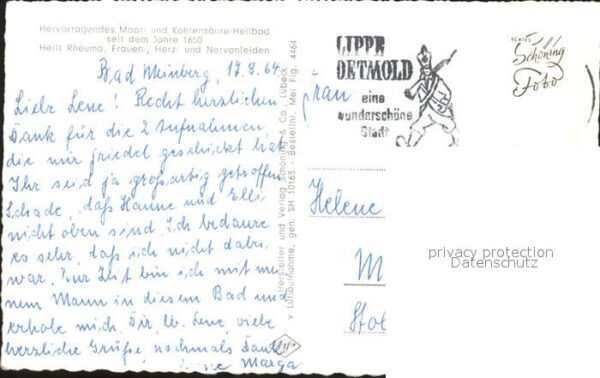 Hervorragendes Moor- und Kohlensäure-Heilbad
seit dem Jahre 1650
Heilt Rheuma, Frauen-, Herz- und Nervenleiden
Bad Meinberg, 17.8.64
Liebe Lene! Recht herzlichen
Dank für die 2 Aufnahmen,
die mir Friedel geschickt hat.
Ihr seid ja großartig getroffen
Schade, daß Hanne und Elli
nicht oben sind. Ich bedaure
es sehr, daß ich nicht dabei
war. Zur Zeit bin ich mit mei
nem Mann in diesem Bad und
erhole mich. Dir, lb. Lene, viele
herzliche Grüße, nochmals Dank
Marga
Hersteller und Verlag Schöning & Co., Lübeck
Luftaufnahme, gen. SH 10163 Bestellnr. Mei Flg. 4464
Agfa
LIPPE
DETMOLD
eine
wunderschöne
Stadt
ECHTES
Schöning
Foto
Frau
Helene
M
privacy protection
Datenschutz